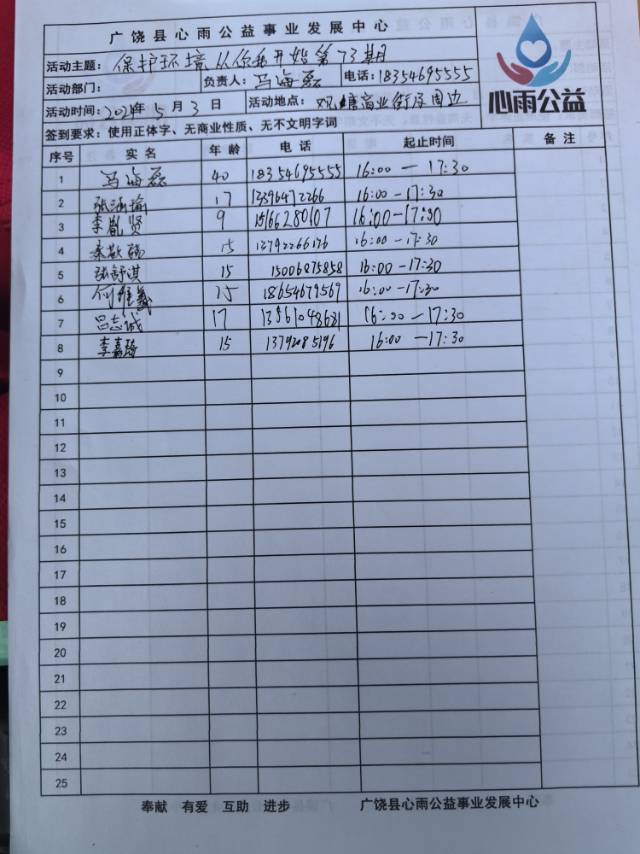 广饶县心雨公益事业发展中心
活动主题： 保护环境从你我开始第73期
活动部门： 负责人：马海磊 电话：18354695555
活动时间：2024年5月3日 活动地点： 商业街及周边
签到要求：使用正体字、无商业性质、无不文明字词
心雨公益
序号 实名 年龄 电话 起止时间 备注
1 马海磊 40 18354695555 16:00—17:30
2 17 13896472266 16:00-17:30
3 李胤贤 9 15166280107 16:00-17:30
4 15 13792266176 16:00-17:30
5 张舒淇 15 15006875858 16:00-17:30
6 15 18654679569 16:00-17:30
7 吕志诚 17 13561048681 16:00-17:30
8 李嘉 15 13792085196 16:00—17:30
9
10
11
12
13
14
15
16
17
18
19
20
21
22
23
24
25
奉献 有爱 互助 进步 广饶县心雨公益事业发展中心